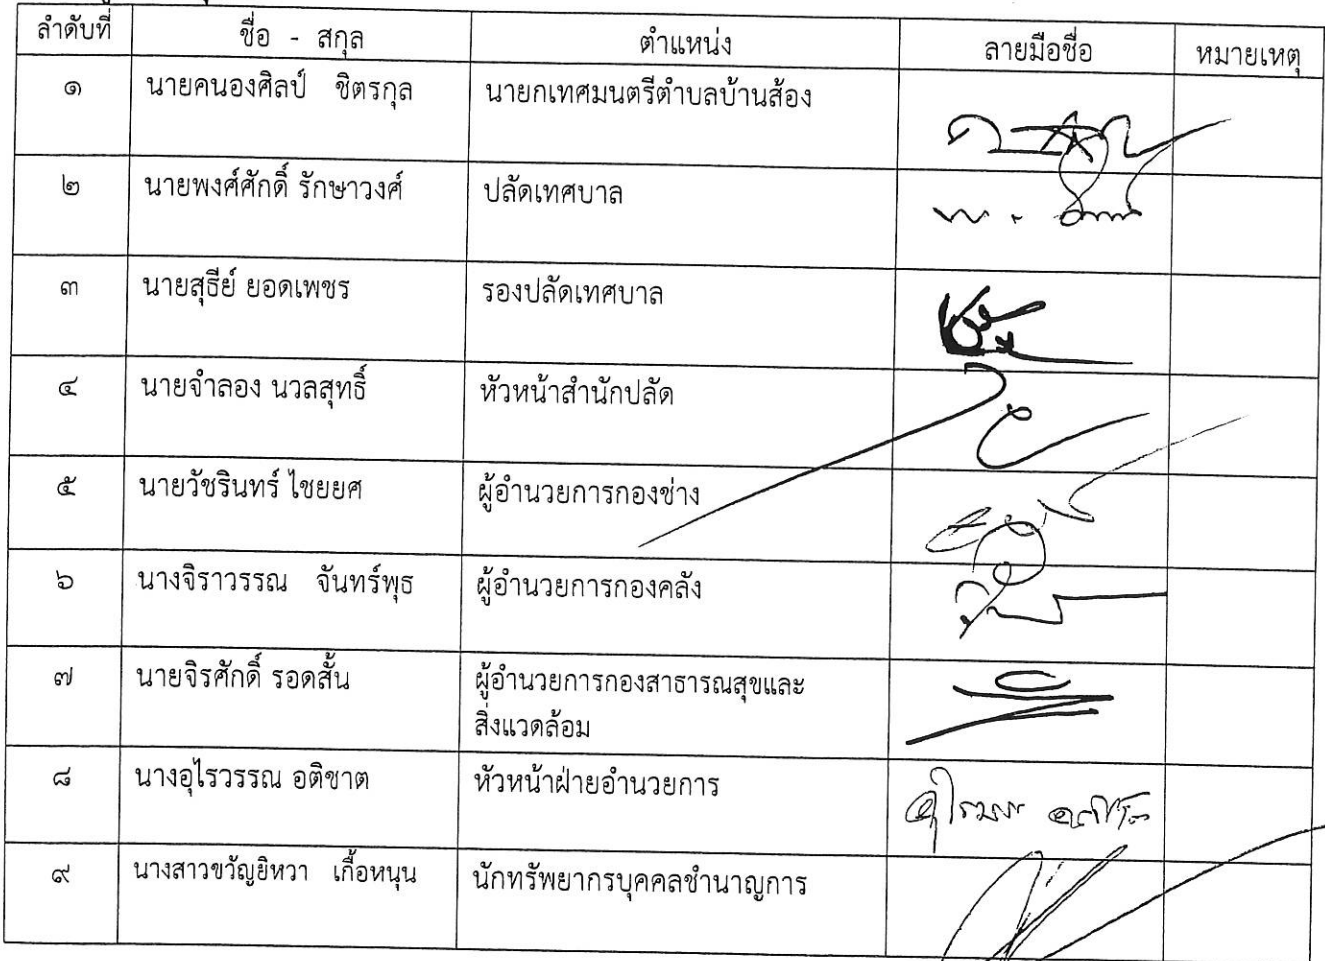 ลำดับที่ ชื่อ - สกุล ตำแหน่ง ลายมือชื่อ หมายเหตุ
๑ นายคนองศิลป์ ชิตรกุล นายกเทศมนตรีตำบลบ้านส้อง
๒ นายพงศ์ศักดิ์ รักษาวงศ์ ปลัดเทศบาล
๓ นายสุธีย์ ยอดเพชร รองปลัดเทศบาล
๔ นายจำลอง นวลสุทธิ์ หัวหน้าสำนักปลัด
๕ นายวัชรินทร์ ไชยยศ ผู้อำนวยการกองช่าง
๖ นางจิราวรรณ จันทร์พุธ ผู้อำนวยการกองคลัง
๗ นายจิรศักดิ์ รอดสั้น ผู้อำนวยการกองสาธารณสุขและ
สิ่งแวดล้อม
๘ นางอุไรวรรณ อติชาต หัวหน้าฝ่ายอำนวยการ
๙ นางสาวขวัญยิหวา เกื้อหนุน นักทรัพยากรบุคคลชำนาญการ